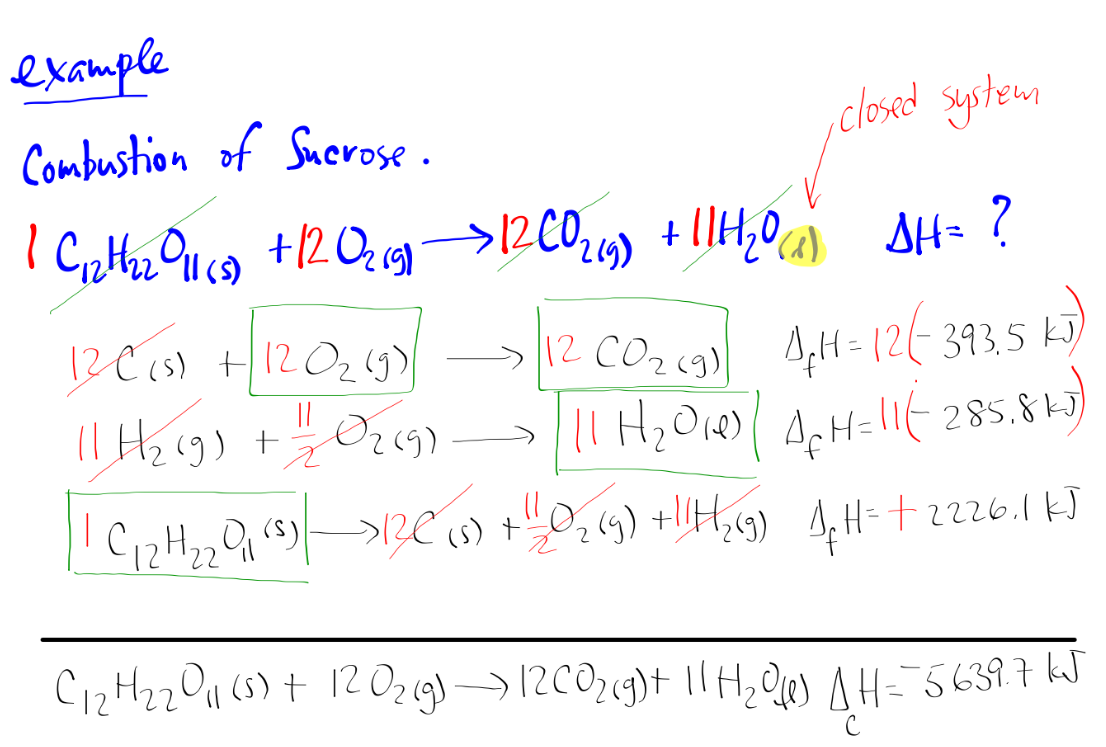 example
closed system
Combustion of Sucrose.
1 C₁₂H₂₂O₁₁(s) + 12 O₂(g) → 12 CO₂(g) + 11 H₂O(l) ΔH = ?
12 C(s) + 12 O₂(g) → 12 CO₂(g) Δ_fH = 12(-393.5 kJ)
11 H₂(g) + 11/2 O₂(g) → 11 H₂O(l) Δ_fH = 11(-285.8 kJ)
1 C₁₂H₂₂O₁₁(s) → 12 C(s) + 11/2 O₂(g) + 11 H₂(g) Δ_fH = + 2226.1 kJ
C₁₂H₂₂O₁₁(s) + 12 O₂(g) → 12 CO₂(g) + 11 H₂O(l) Δ_cH = -5639.7 kJ